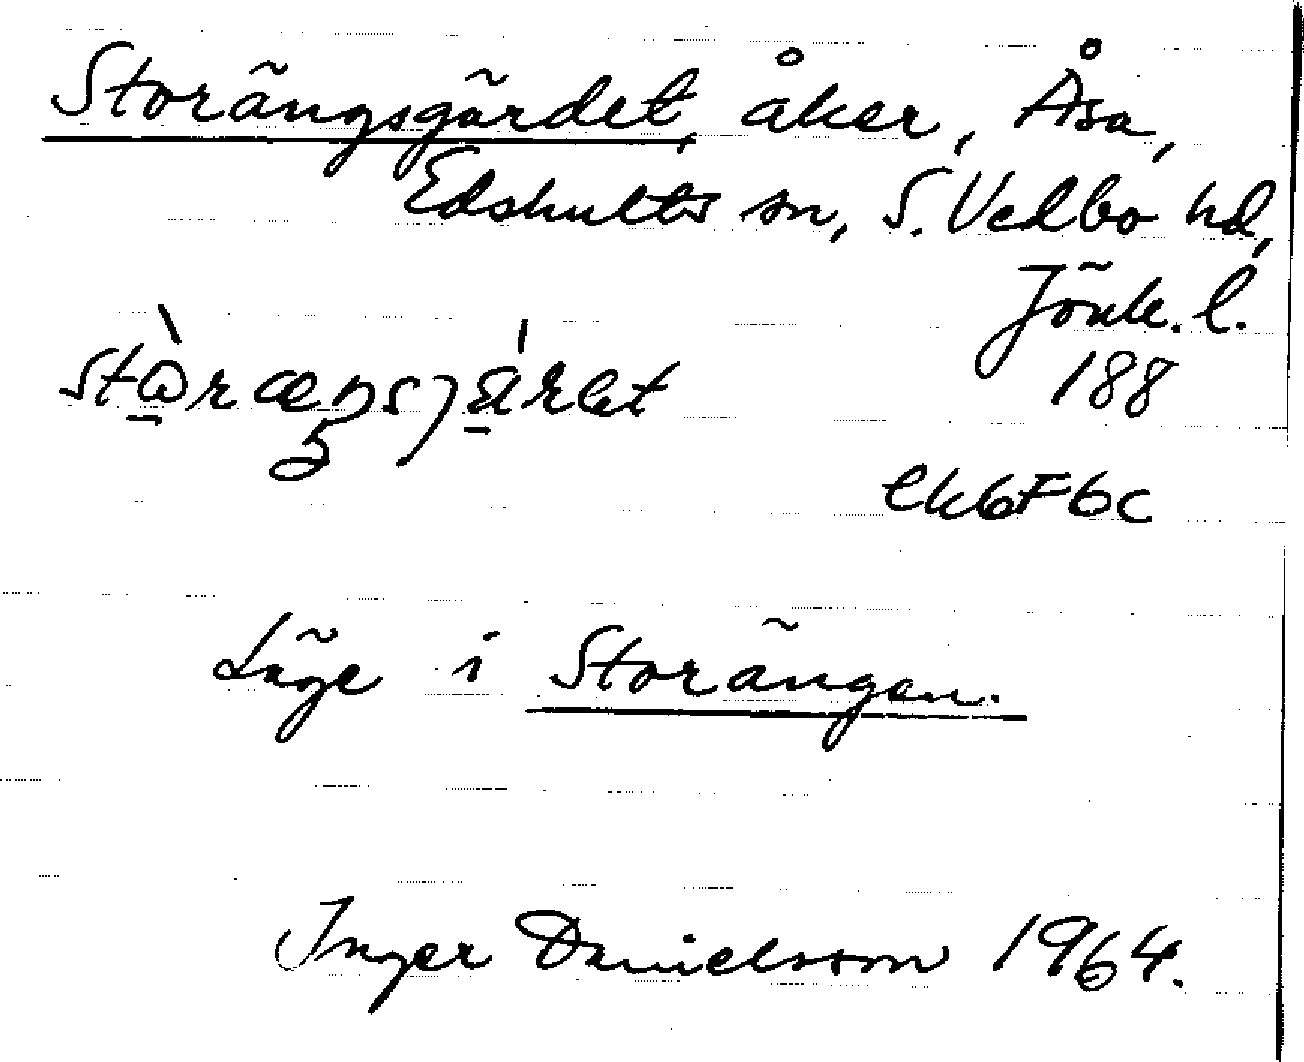 Storängsgärdet, åker, Åsa,
Edshults sn, S. Vedbo hd,
Jönk. l.
188
ek6F6c
Läge i Storängen.
Inger Danielsson 1964.